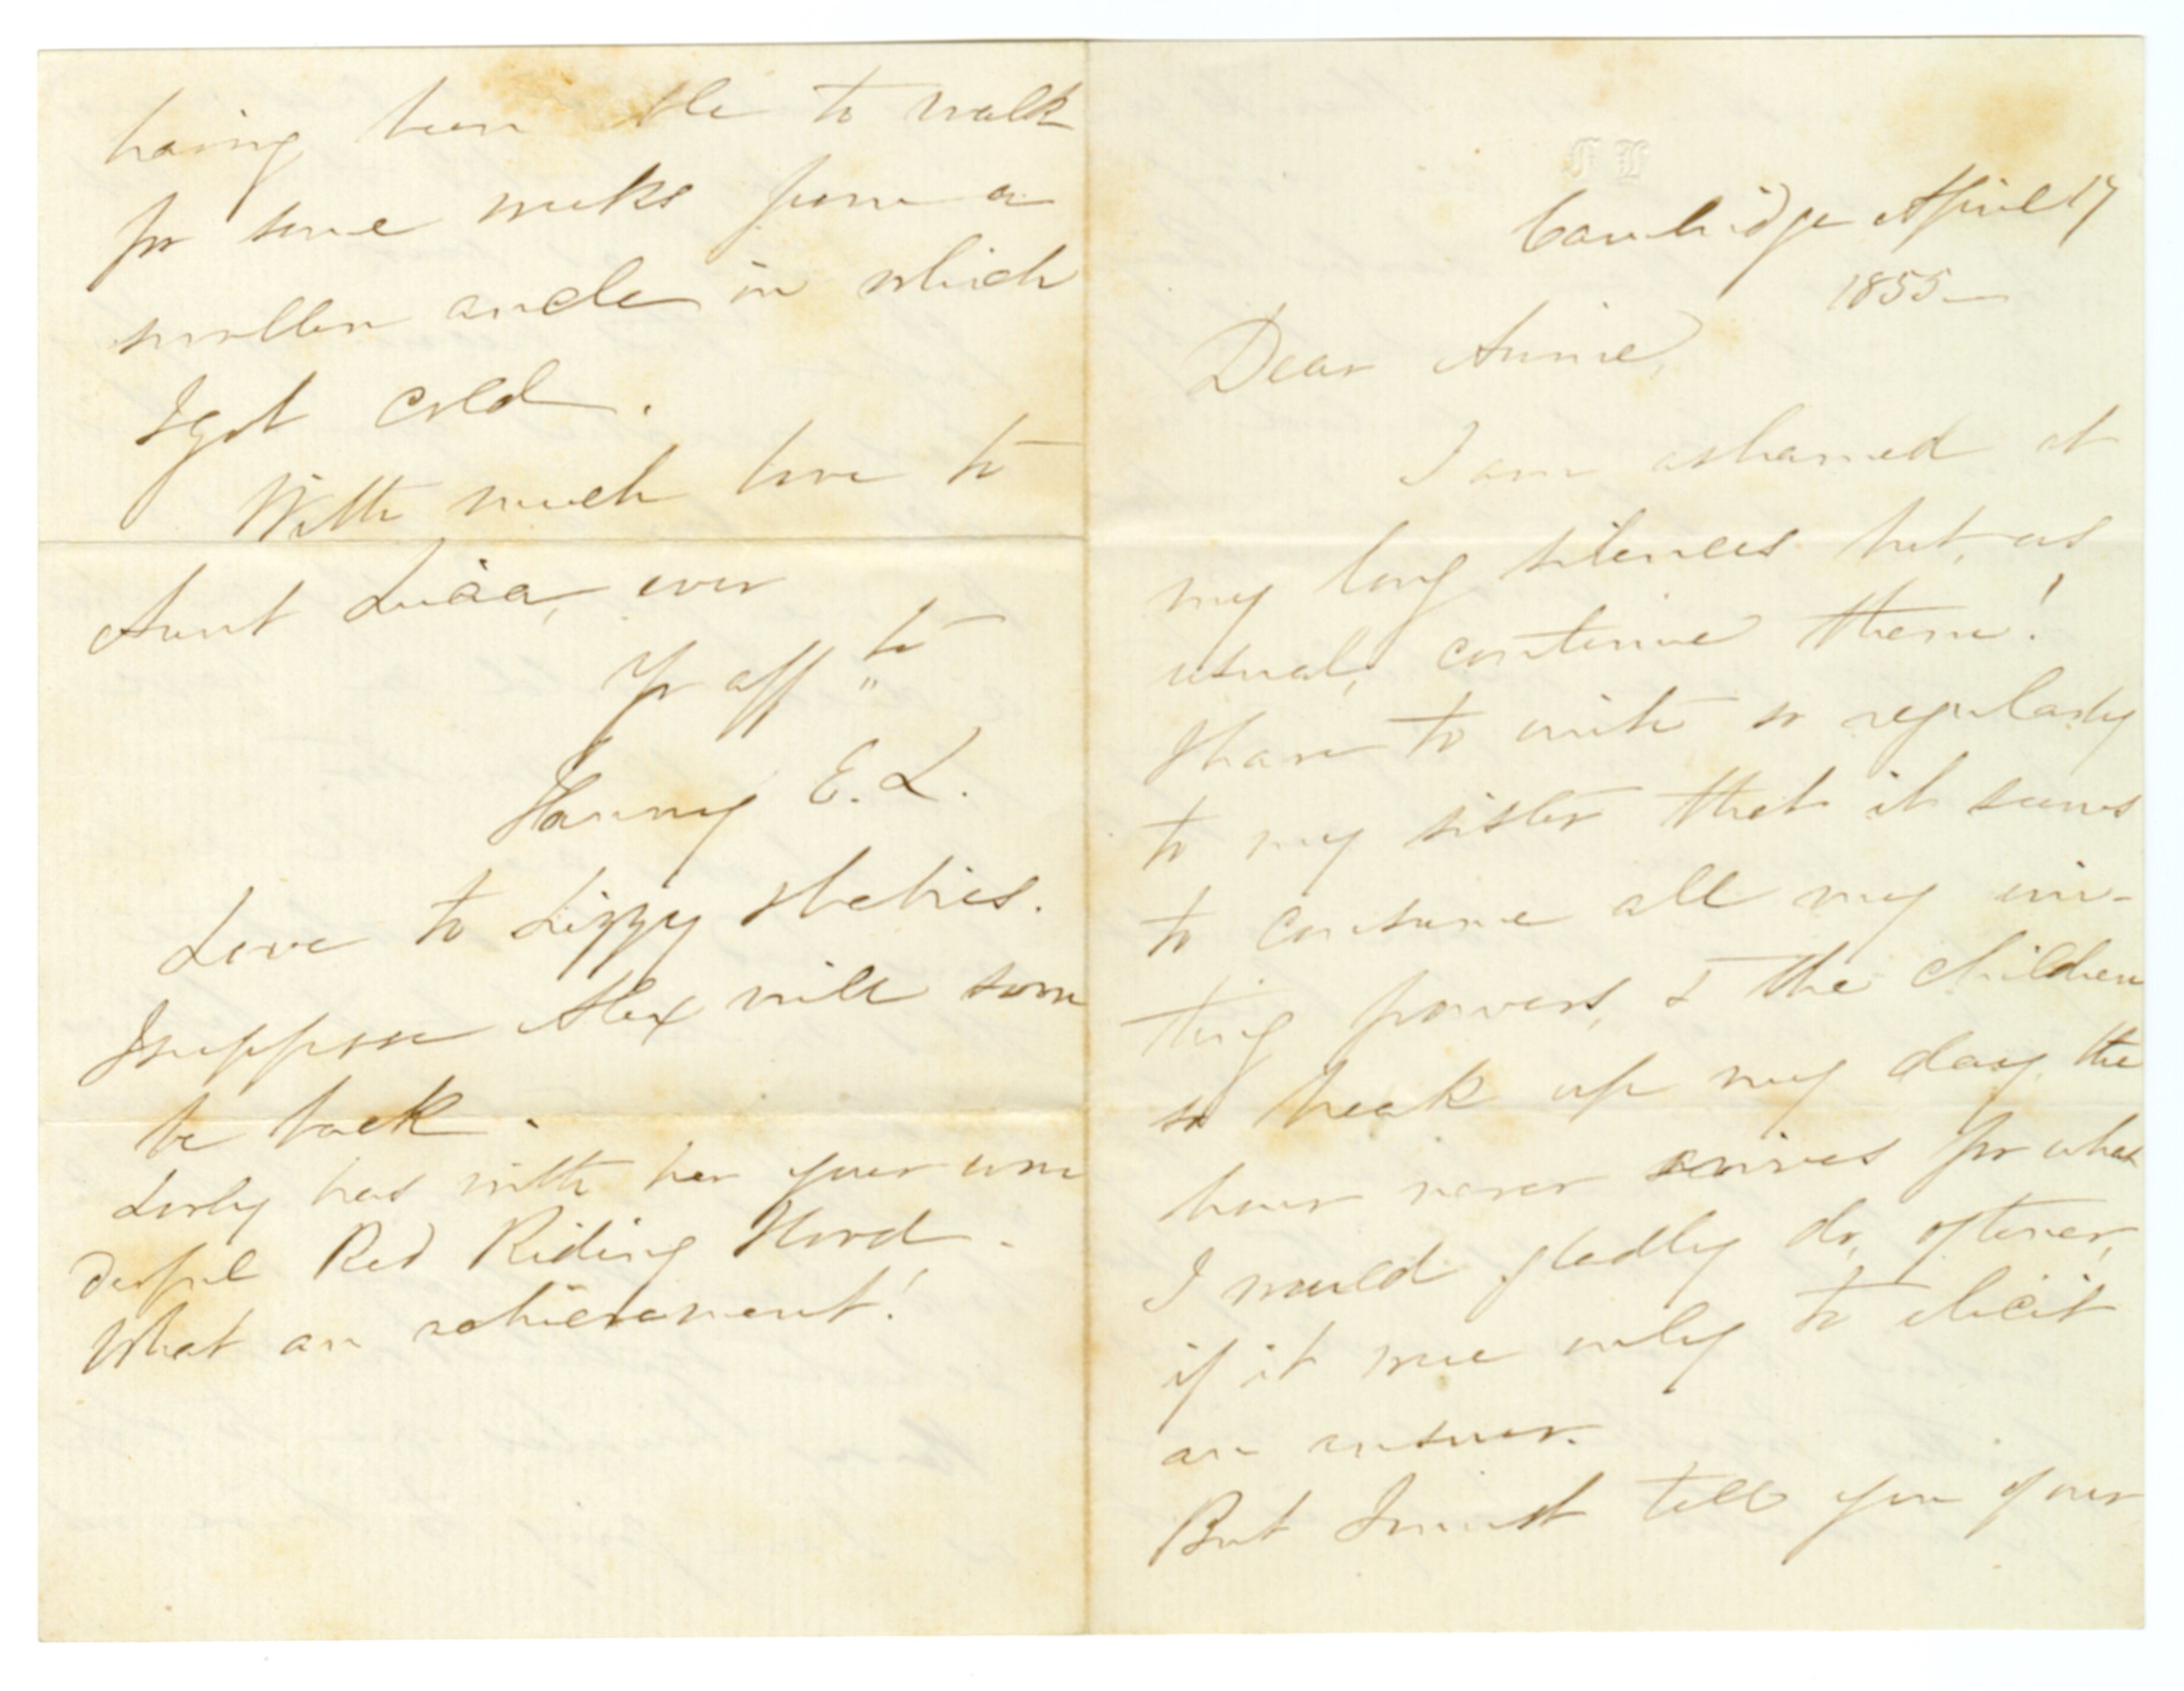 Cambridge April 17
1855—
Dear Annie,
I am ashamed at
my long silences but, as
usual, continue them!
I have to write so regularly
to my sister that it seems
to consume all my wri-
ting powers, & the children
so break up my day, the
hour never arrives for what
I would gladly do, oftener,
if it were only to elicit
an answer.
But I must tell you of our
having been able to walk
for some weeks from a
swollen ancle in which
I got cold.
With much love to
Aunt ever
Yr aff"te
Fanny E. L.
Love to Lizzy & babies.
I suppose Alex will soon
be back.
has with her your won
derful Red Riding Hood.
What an achievement!